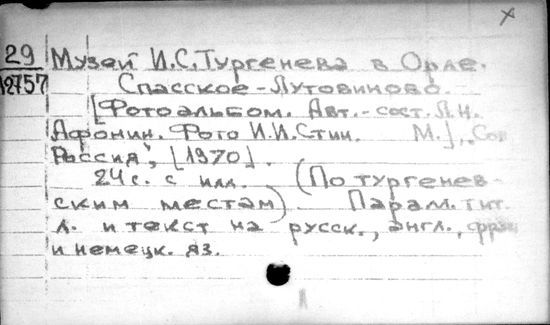 29
12757
Музей И.С.Тургенева в Орле.
Спасское-Лутовиново.
[Фотоальбом. Авт.-сост. Л.Н.
Афонин. Фото И.И.Стин. М.], „Сов
Россия", [1970].
24с. с илл. (По тургенев-
ским местам) Парал. тит.
л. и текст на русск., англ., франц
и немецк. яз.